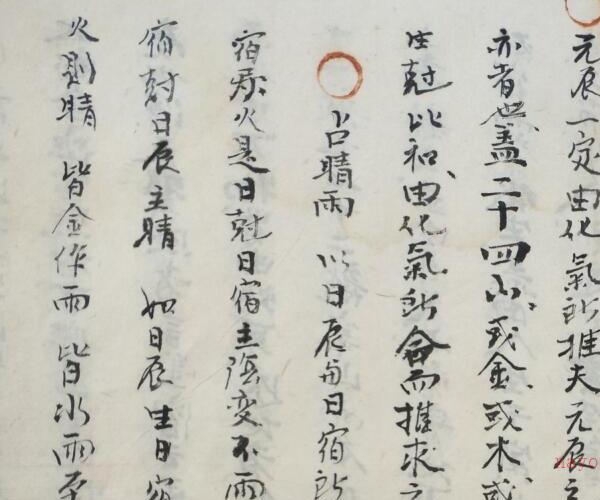 元辰一定由化氣所推夫元辰之
亦者也蓋二十四山或金或木或
生尅比和由化氣所命而推求之
占晴雨 以日辰与日宿所
宿屬火是日尅日宿主陰变不雨
宿尅日辰主晴 如日辰生日宿
火則晴 皆金作雨 皆水雨至
nayo